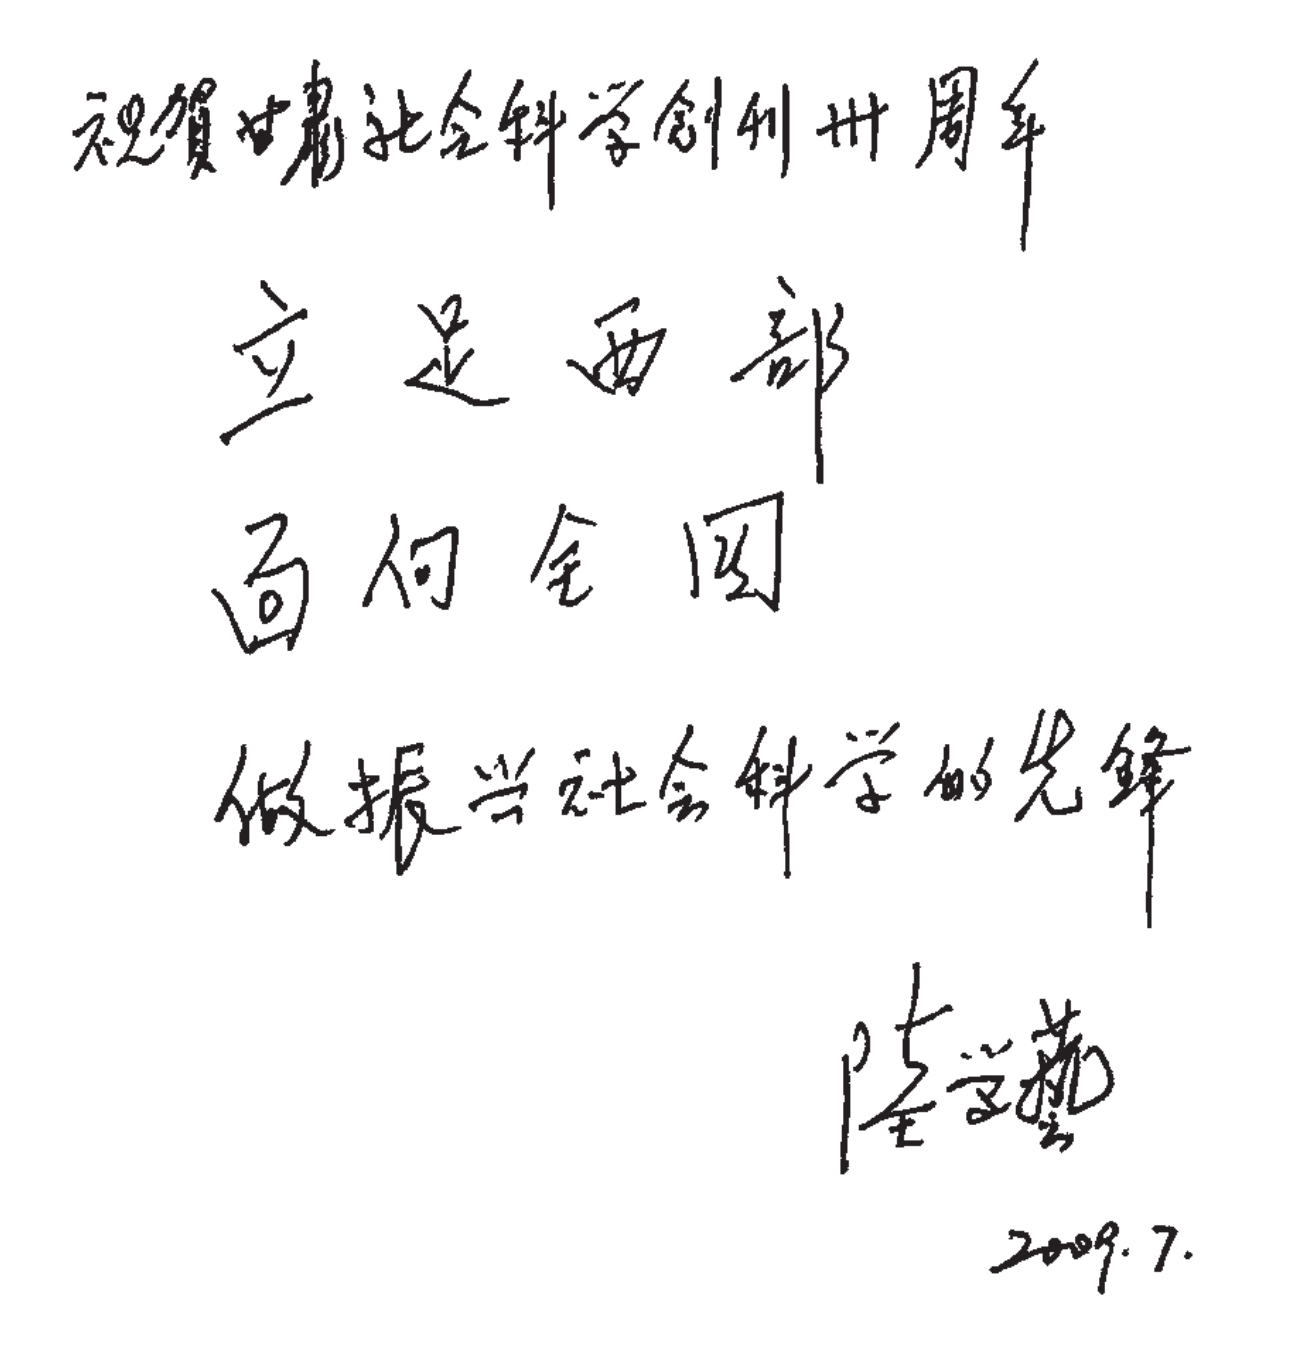 祝賀甘肅社会科学創刊卅周年
立足西部
面向全国
做振兴社会科学的先鋒
陸学藝
2009.7.